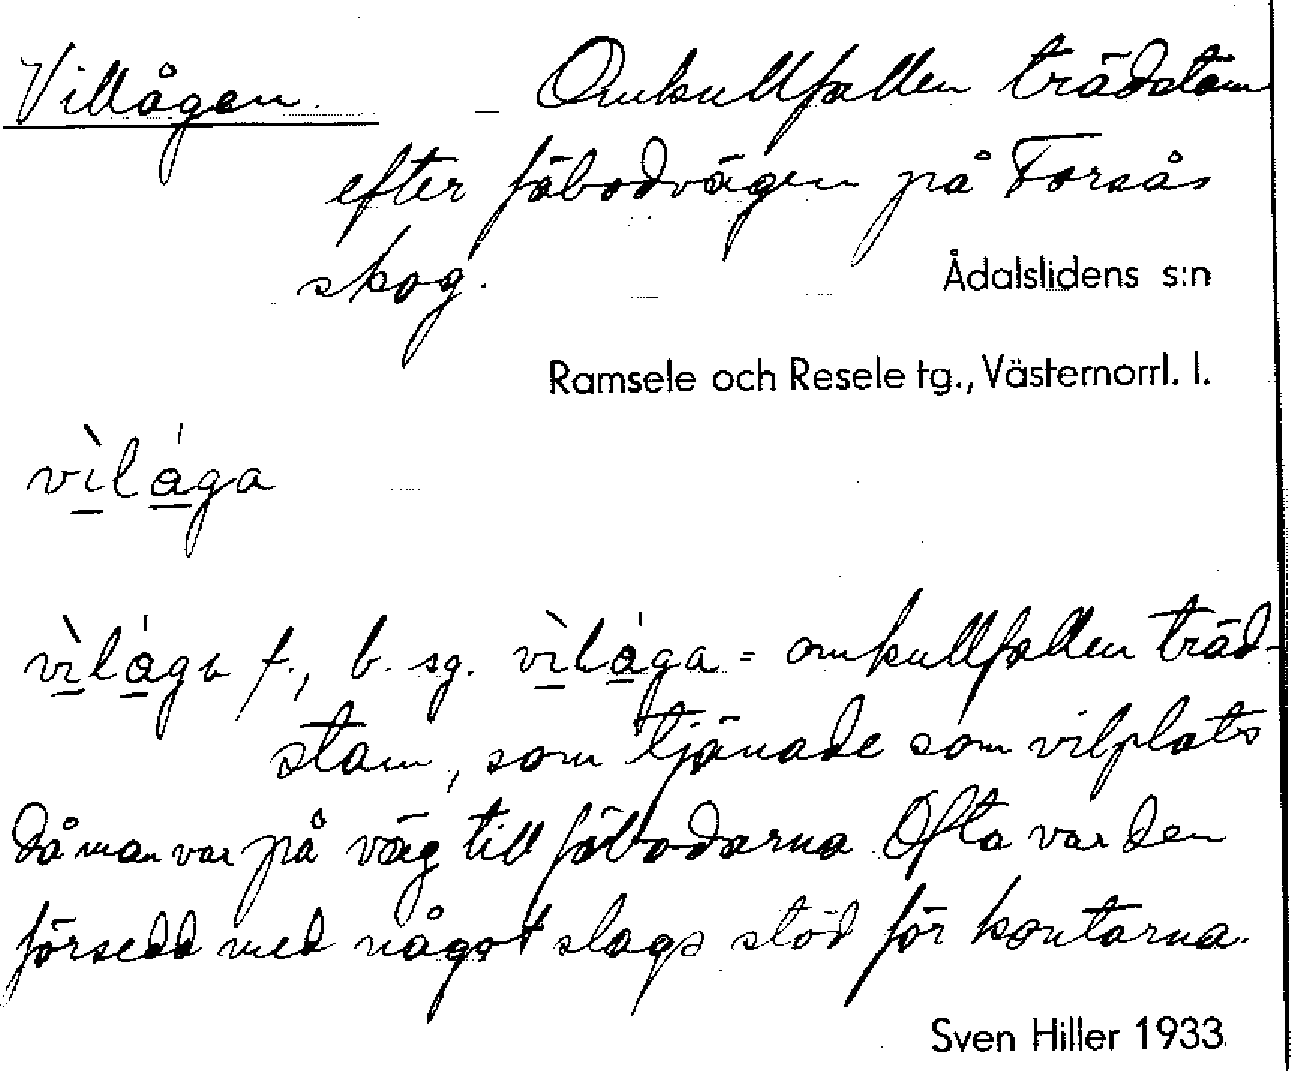 Villågan. - Omkullfallen trädstam
efter fäbodvägen på Forsås
skog.
Ådalslidens s:n
Ramsele och Resele tg., Västernorrl. l.
vìlåga
vìlåga f., b. sg. vìlåga = omkullfallen träd-
stam, som tjänade som vilplats
då man var på väg till fäbodarna. Ofta var den
försedd med något slags stöd för kontarna.
Sven Hiller 1933